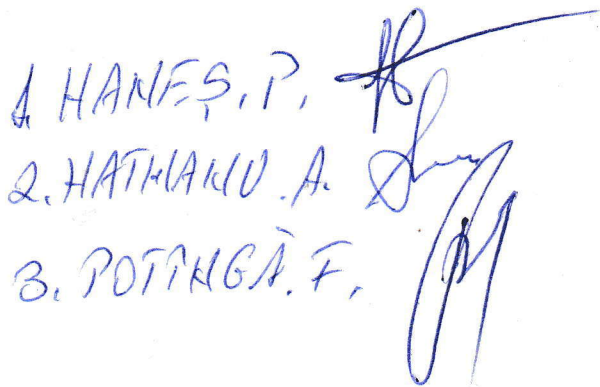 1. HANEȘ. P.
2. HATMANU. A.
3. POTÎNGĂ. F.